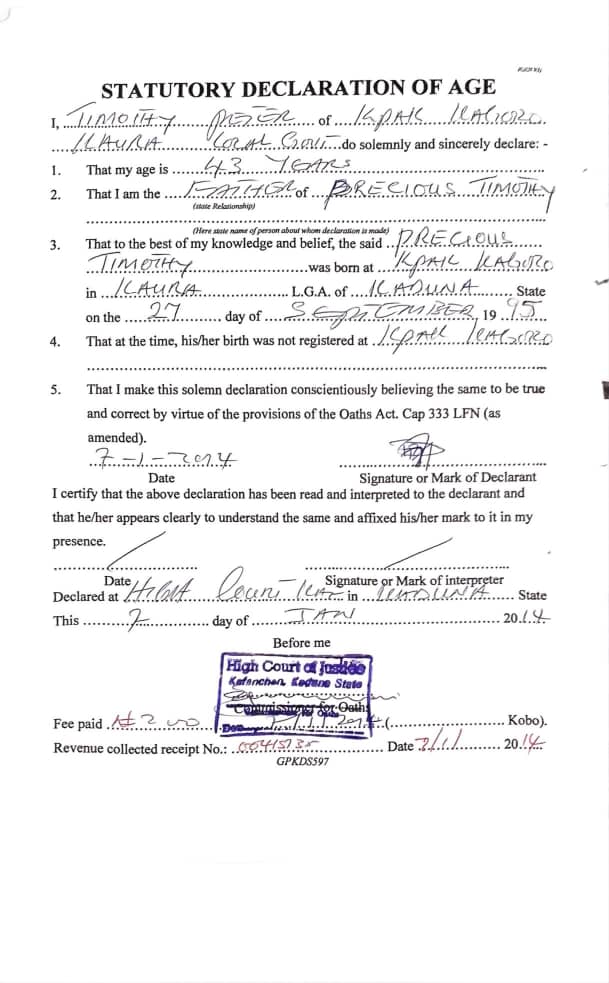 STATUTORY DECLARATION OF AGE
I, TIMOTHY PETER of KPAK KAGORO
KAURA LOCAL GOVT do solemnly and sincerely declare: -
1. That my age is 43 YEARS
2. That I am the FATHER of PRECIOUS TIMOTHY
(state Relationship)
(Here state name of person about whom declaration is made)
3. That to the best of my knowledge and belief, the said PRECIOUS
TIMOTHY was born at KPAK KAGORO
in KAURA L.G.A. of KADUNA State
on the 27 day of SEPTEMBER, 19 95
4. That at the time, his/her birth was not registered at KPAK KAGORO
5. That I make this solemn declaration conscientiously believing the same to be true
and correct by virtue of the provisions of the Oaths Act. Cap 333 LFN (as
amended).
7-1-2014
Date Signature or Mark of Declarant
I certify that the above declaration has been read and interpreted to the declarant and
that he/her appears clearly to understand the same and affixed his/her mark to it in my
presence.
Date Signature or Mark of interpreter
Declared at HIGH Court KAF in KADUNA State
This 7 day of JAN 2014
Before me
High Court of Justice
Kafanchan, Kaduna State
Commissioner for Oaths
Fee paid ₦200 ( Kobo).
Revenue collected receipt No.: Date 7/1/ 2014
GPKDS597